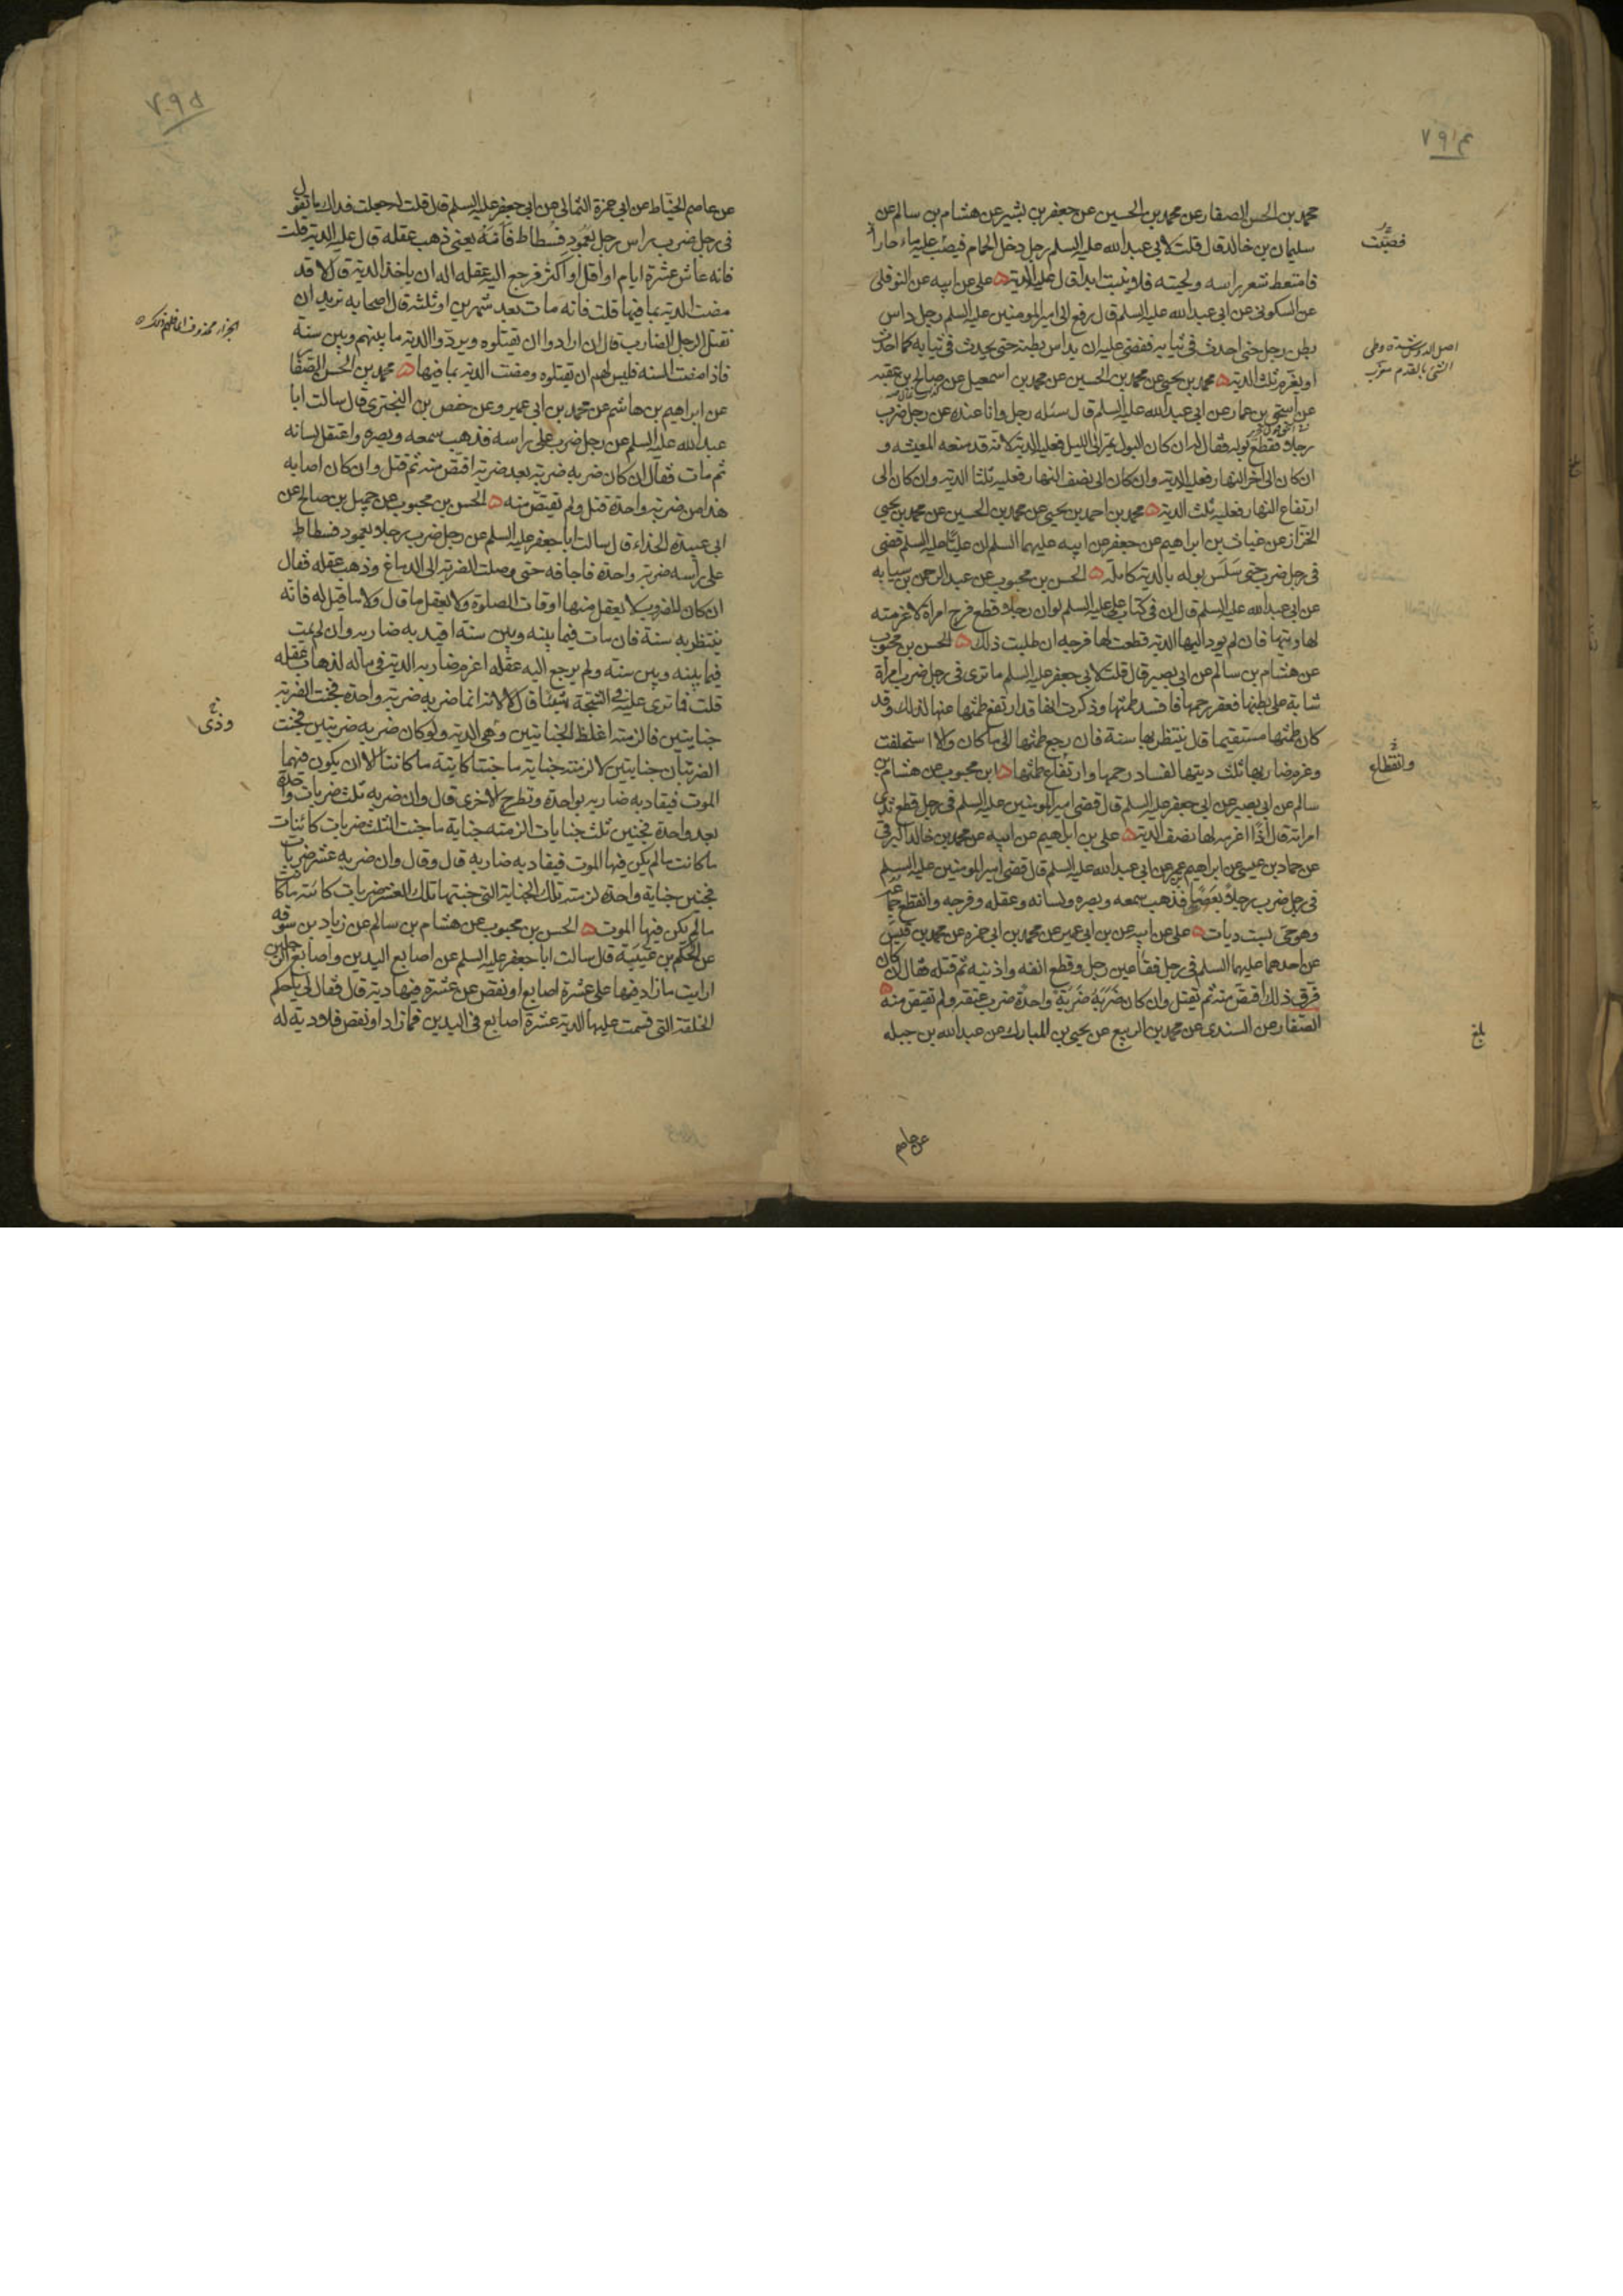 ٧٩٤
محمد بن الحسن الصفار عن محمد بن الحسين عن جعفر بن بشير عن هشام بن سالم عن
سليمان بن خالد قال قلت لابي عبد الله عليه السلم رجل دخل الحمام فيصب عليه ماء حار
فامتعط شعر راسه ولحيته فلا ينبت ابدا قال عليه الدية ه علي عن ابيه عن النوفلي
عن السكوني عن ابي عبد الله عليه السلم قال رفع الى امير المومنين عليه السلم رجل داس
بطن رجل حتى احدث في ثيابه فقضى عليه ان يداس بطنه حتى يحدث في ثيابه كما احدث
او يغرم ثلث الدية ه محمد بن يحيى عن محمد بن الحسين عن محمد بن اسمعيل عن صالح بن عقبه
عن اسحق بن عمار عن ابي عبد الله عليه السلم قال سئله رجل وانا عنده عن رجل ضرب
رجلا فقطع بوله فقال له ان كان البول يمر الى الليل فعليه الدية لانه قد منعه المعيشه و
ان كان الى اخر النهار فعليه الدية وان كان الى نصف النهار فعليه ثلثا الدية وان كان الى
ارتفاع النهار فعليه ثلث الدية ه محمد بن احمد بن يحيى عن محمد بن الحسين عن محمد بن يحيى
الخزاز عن غياث بن ابراهيم عن جعفر عن ابيه عليهما السلم ان عليا عليه السلم قضى
في رجل ضرب حتى سلس بوله بالدية كاملة ه الحسن بن محبوب عن عبد الرحمن بن سيابه
عن ابي عبد الله عليه السلم قال ان في كتاب علي عليه السلم لو ان رجلا قطع فرج امراة لاغرمته
لها ديتها فان لم يود اليها الدية قطعت لها فرجه ان طلبت ذلك ه الحسن بن محبوب
عن هشام بن سالم عن ابي بصير قال قلت لابي جعفر عليه السلم ما ترى في رجل ضرب امراة
شابة على بطنها فعقر رحمها فافسد طمثها وذكرت انها قد ارتفع طمثها عنها لذلك وقد
كان طمثها مستقيما قال ينتظر بها سنة فان رجع طمثها الى ما كان والا استحلفت
وغرم ضاربها ثلث ديتها لفساد رحمها وارتفاع طمثها ه ابن محبوب عن هشام بن
سالم عن ابي بصير عن ابي جعفر عليه السلم قال قضى امير المومنين عليه السلم في رجل قطع ثدي
امراته قال اذا اغرمه لها نصف الدية ه علي بن ابراهيم عن ابيه عن محمد بن خالد البرقي
عن حماد بن عيسى عن ابراهيم بن عمر عن ابي عبد الله عليه السلم قال قضى امير المومنين عليه السلم
في رجل ضرب رجلا بعصا فذهب سمعه وبصره ولسانه وعقله وفرجه وانقطع جماعه
وهو حي بست ديات ه علي عن ابيه عن بن ابي عمير عن محمد بن ابي حمزه عن محمد بن قيس
عن احدهما عليهما السلم في رجل فقا عين رجل وقطع انفه واذنيه ثم قتله فقال ان كان
فرق ذلك اقتص منه ثم يقتل وان كان ضربه ضربة واحدة ضرب عنقه ولم يقتص منه ه
الصفار عن السندي عن محمد بن الربيع عن يحيى بن المبارك عن عبد الله بن جبله
فصبت
اصل الدوس شدة وطى
الشى بالقدم
وانقطاع
بلغ
عن عاصم
٧٩٥
عن عاصم الخياط عن ابي حمزة الثمالي عن ابي جعفر عليه السلم قال قلت له جعلت فداك ما تقول
في رجل ضرب راس رجل بعمود فسطاط فامّه يعني ذهب عقله قال عليه الدية قلت
فانه عاش عشرة ايام او اقل او اكثر فرجع اليه عقله اله ان ياخذ الدية قال لا قد
مضت الدية بما فيها قلت فانه مات بعد شهرين او ثلثة قال اصحابه نريد ان
نقتل الرجل الضارب قال ان ارادوا ان يقتلوه ويردوا الدية ما بينهم وبين سنة
فاذا مضت السنه فليس لهم ان يقتلوه ومضت الدية بما فيها ه محمد بن الحسن الصفار
عن ابراهيم بن هاشم عن محمد بن ابي عمير وعن حفص بن البختري قال سالت ابا
عبد الله عليه السلم عن رجل ضرب على راسه فذهب سمعه وبصره واعتقل لسانه
ثم مات فقال ان كان ضربه ضربة بعد ضربة اقتص منه ثم قتل وان كان اصابه
هذا من ضربة واحدة قتل ولم يقتص منه ه الحسن بن محبوب عن جميل بن صالح عن
ابي عبيدة الحذاء قال سالت ابا جعفر عليه السلم عن رجل ضرب رجلا بعمود فسطاط
على راسه ضربة واحدة فاجافه حتى وصلت الضربة الى الدماغ وذهب عقله فقال
ان كان المضروب لا يعقل منها اوقات الصلوة ولا يعقل ما قال ولا ما قيل له فانه
ينتظر به سنة فان مات فيما بينه وبين سنة اقيد به ضاربه وان لم يمت
فيما بينه وبين سنة ولم يرجع اليه عقله اغرم ضاربه الدية في ماله لذهاب عقله
قلت فما ترى عليه في الشجة شيئا قال لا لانه انما ضربه ضربة واحدة فجنت الضربة
جنايتين فالزمته اغلظ الجنايتين وهي الدية ولو كان ضربه ضربتين فجنت
الضربتان جنايتين لالزمته جناية ما جنتا كاينة ما كانتا الا ان يكون فيهما
الموت فيقاد به ضاربه بواحدة وتطرح الاخرى قال وان ضربه ثلث ضربات واحدة
بعد واحدة فجنين ثلث جنايات الزمته جناية ما جنت الثلث ضربات كائنات
ما كانت ما لم يكن فيها الموت فيقاد به ضاربه قال وقال وان ضربه عشر ضربات
فجنين جناية واحدة لزمته تلك الجناية التي جنتها تلك العشر ضربات كائنة ما كانت
ما لم يكن فيها الموت ه الحسن بن محبوب عن هشام بن سالم عن زياد بن سوقه
عن الحكم بن عتيبة قال سالت ابا جعفر عليه السلم عن اصابع اليدين واصابع الرجلين
ارايت ما زاد فيها على عشرة اصابع او نقص عن عشرة فيها دية قال فقال لي يا حكم
الخلقة التي قسمت عليها الدية عشرة اصابع في اليدين فما زاد او نقص فلا دية له
وذى